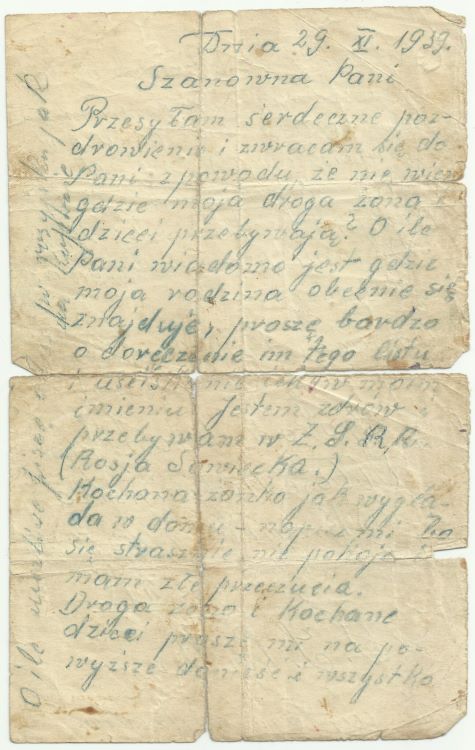 Dnia 29. XI. 1939.
Szanowna Pani
Przesyłam serdeczne poz-
drowienia i zwracam się do
Pani z powodu, że nie wiem
gdzie moja droga żona i
dzieci przebywają? O ile
Pani wiadomo jest gdzie
moja rodzina obecnie się
znajduje, proszę bardzo
o doręczenie im tego listu
i w moim
imieniu. Jestem zdrów i
przebywam w Z. S. R. R.
(Rosja Sowiecka.)
Kochana żonko jak wyglą-
da w domu - bo
się strasznie nie pokoję i
mam złe przeczucia.
Droga żono i Kochane
dzieci proszę mi na po-
wyższe donieść i wszystko
O ile